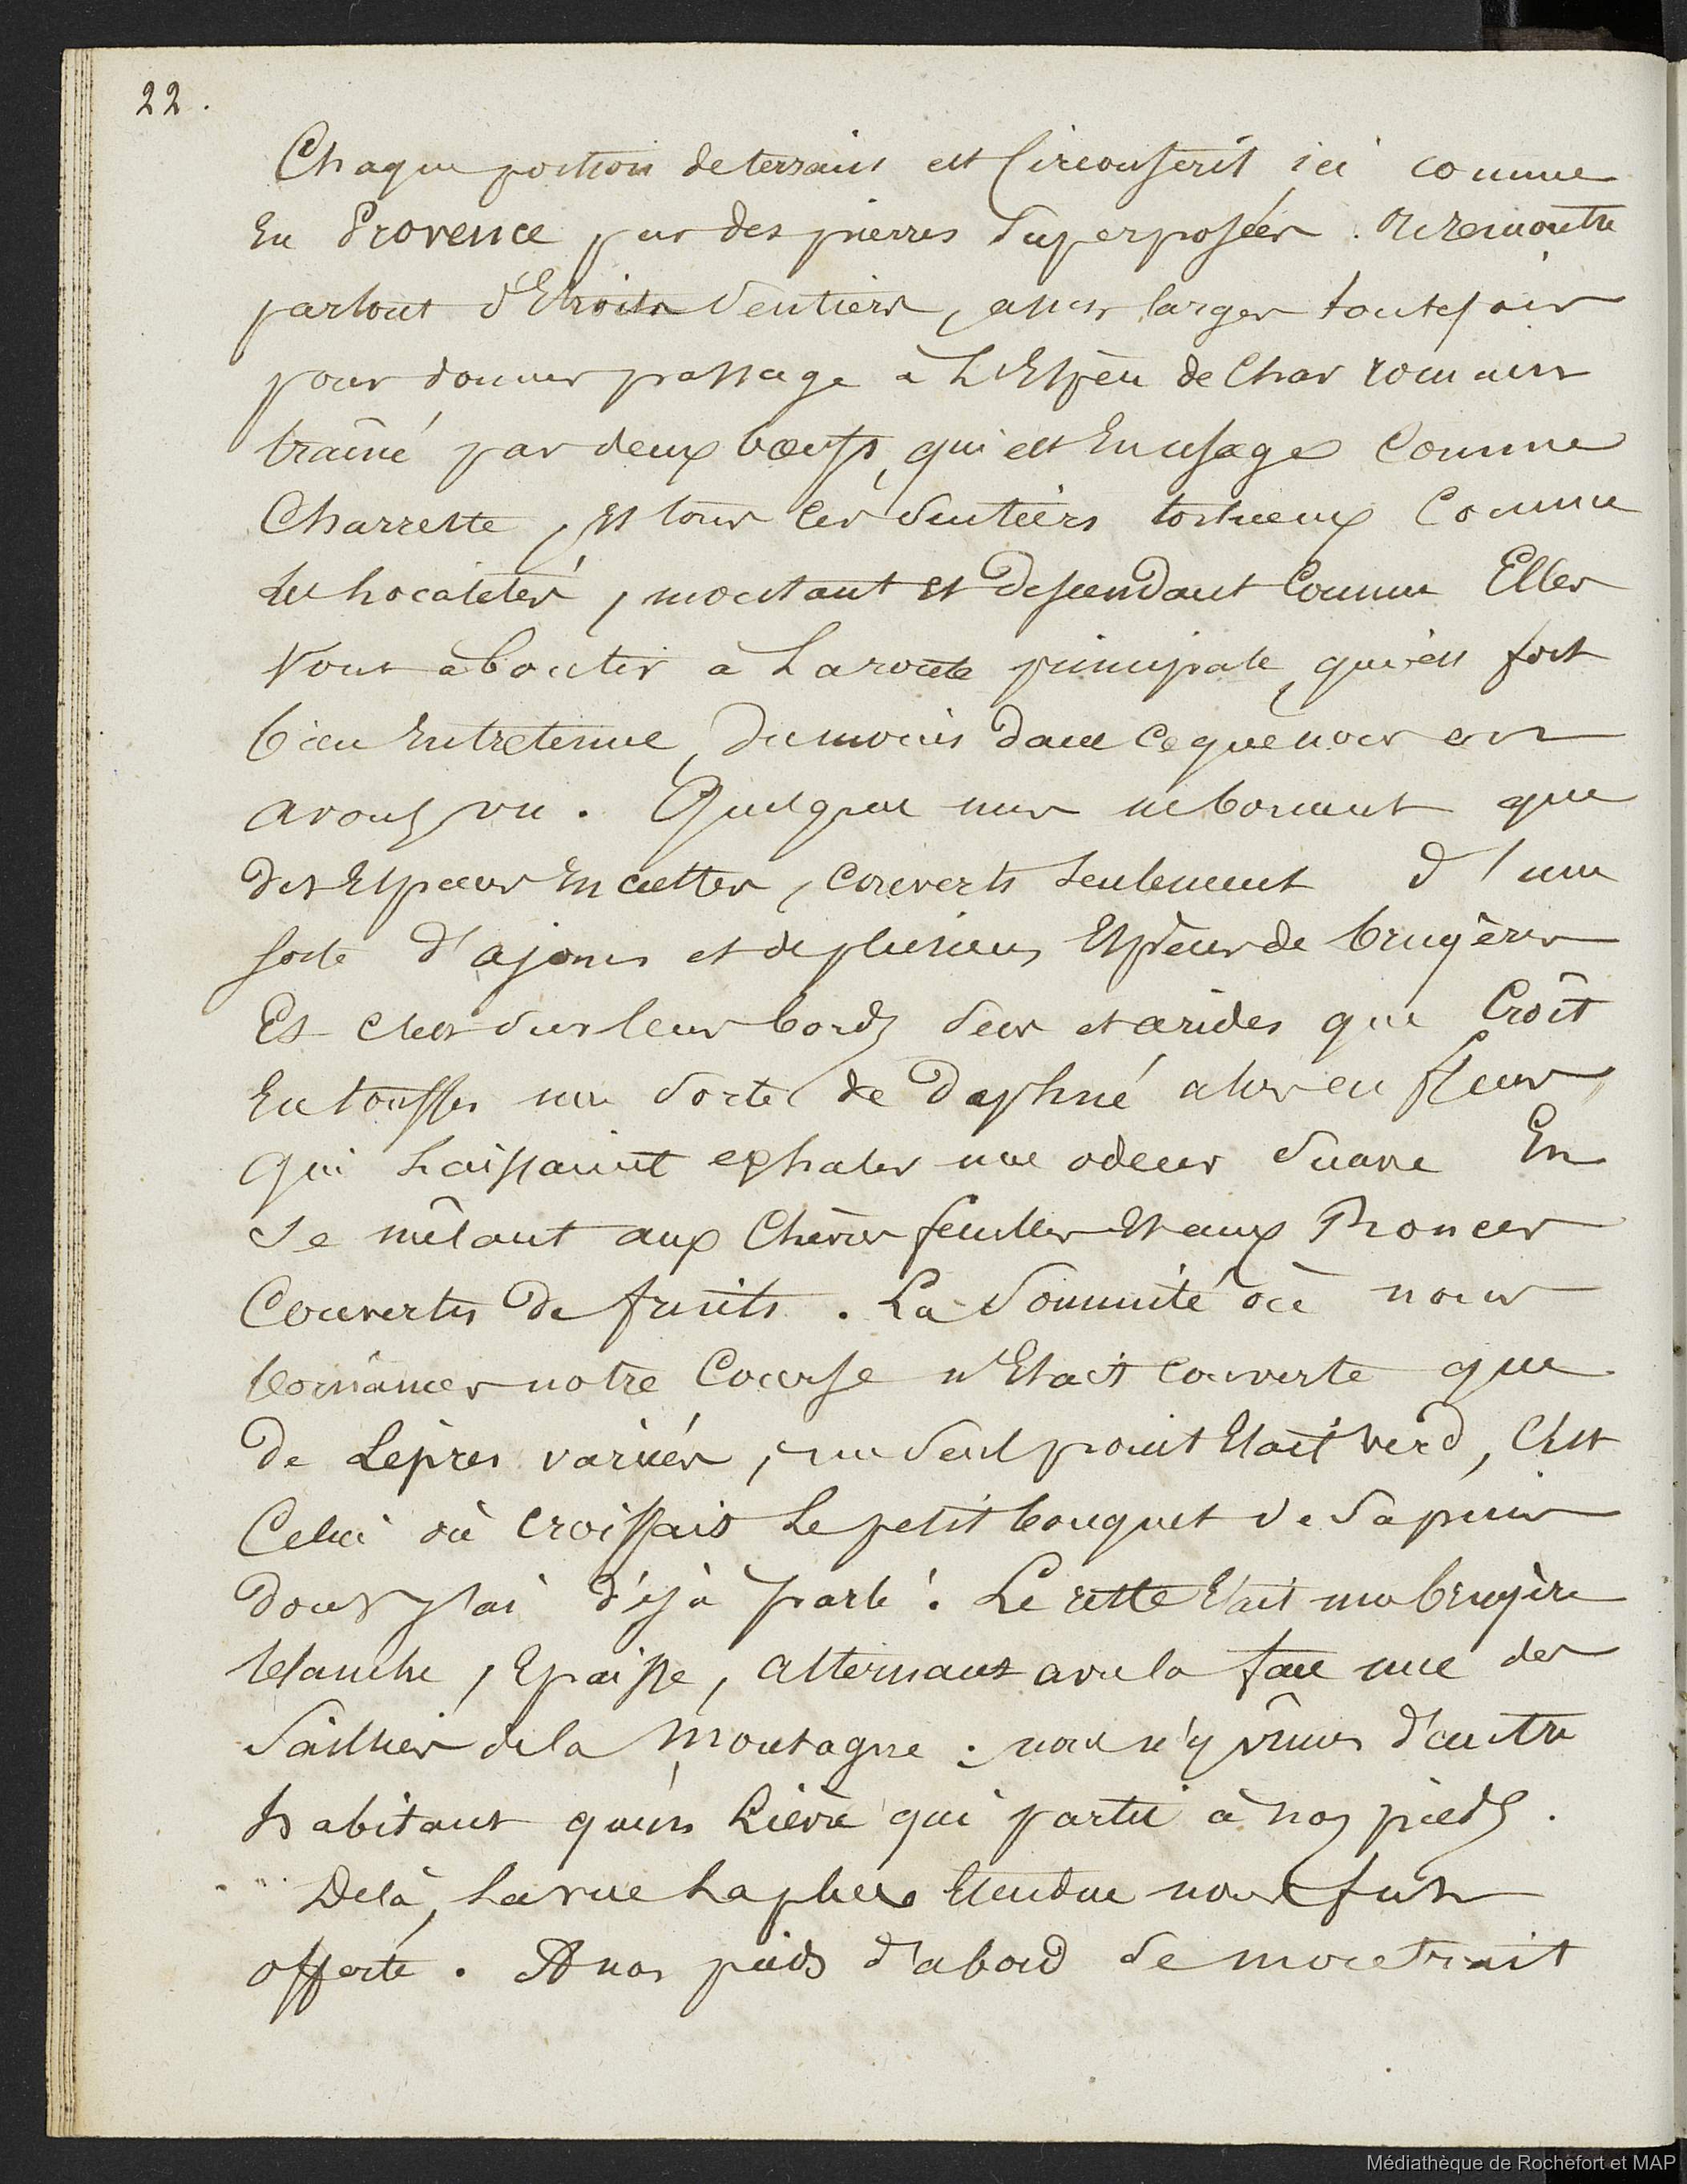 22.
Chaque portion de terrain est circonscrit ici comme
En Provence par des pierres superposées. On remontre
partout d'Etroits Sentiers, assez larges toutefois
pour donner passage à L'Espèce de Char romain
traîné par deux bœufs, qui est En usage Comme
Charrette, Et tous ces Sentiers tortueux Comme
Les Localités, montant et descendant Comme Elles
Vont aboutir à La route principale, qui est fort
bien Entretenue, du moins dans ce que nous en
avons vu. Quelques uns ne bornent que
des Espaces incultes, couverts seulement d'une
sorte d'ajoncs et de plusieurs Espèces de bruyères
Et C'est sur leurs bords secs et arides que Croît
En touffes une Sorte de Daphné alors en fleurs,
Qui Laissaient exhaler une odeur Suave En
Se mêlant aux Chèvres feuilles Et aux Ronces
Couvertes de fruits. La Sommité où nous
bornâmes notre Course n'Etait couverte que
De Lèpres variées, un Seul point Etait verd, C'est
Celui où croissait Le petit bouquet de Sapins
dont j'ai déjà parlé. Le reste était une bruyère
blanche, Epaisse, alternant avec la face nue des
Saillies de la Montagne : nous n'y vîmes d'autre
habitant qu'un Lièvre qui partit à nos pieds.
Delà, La vue La plus Etendue nous fut
offerte. A nos pieds d'abord se montrait
Médiathèque de Rochefort et MAP